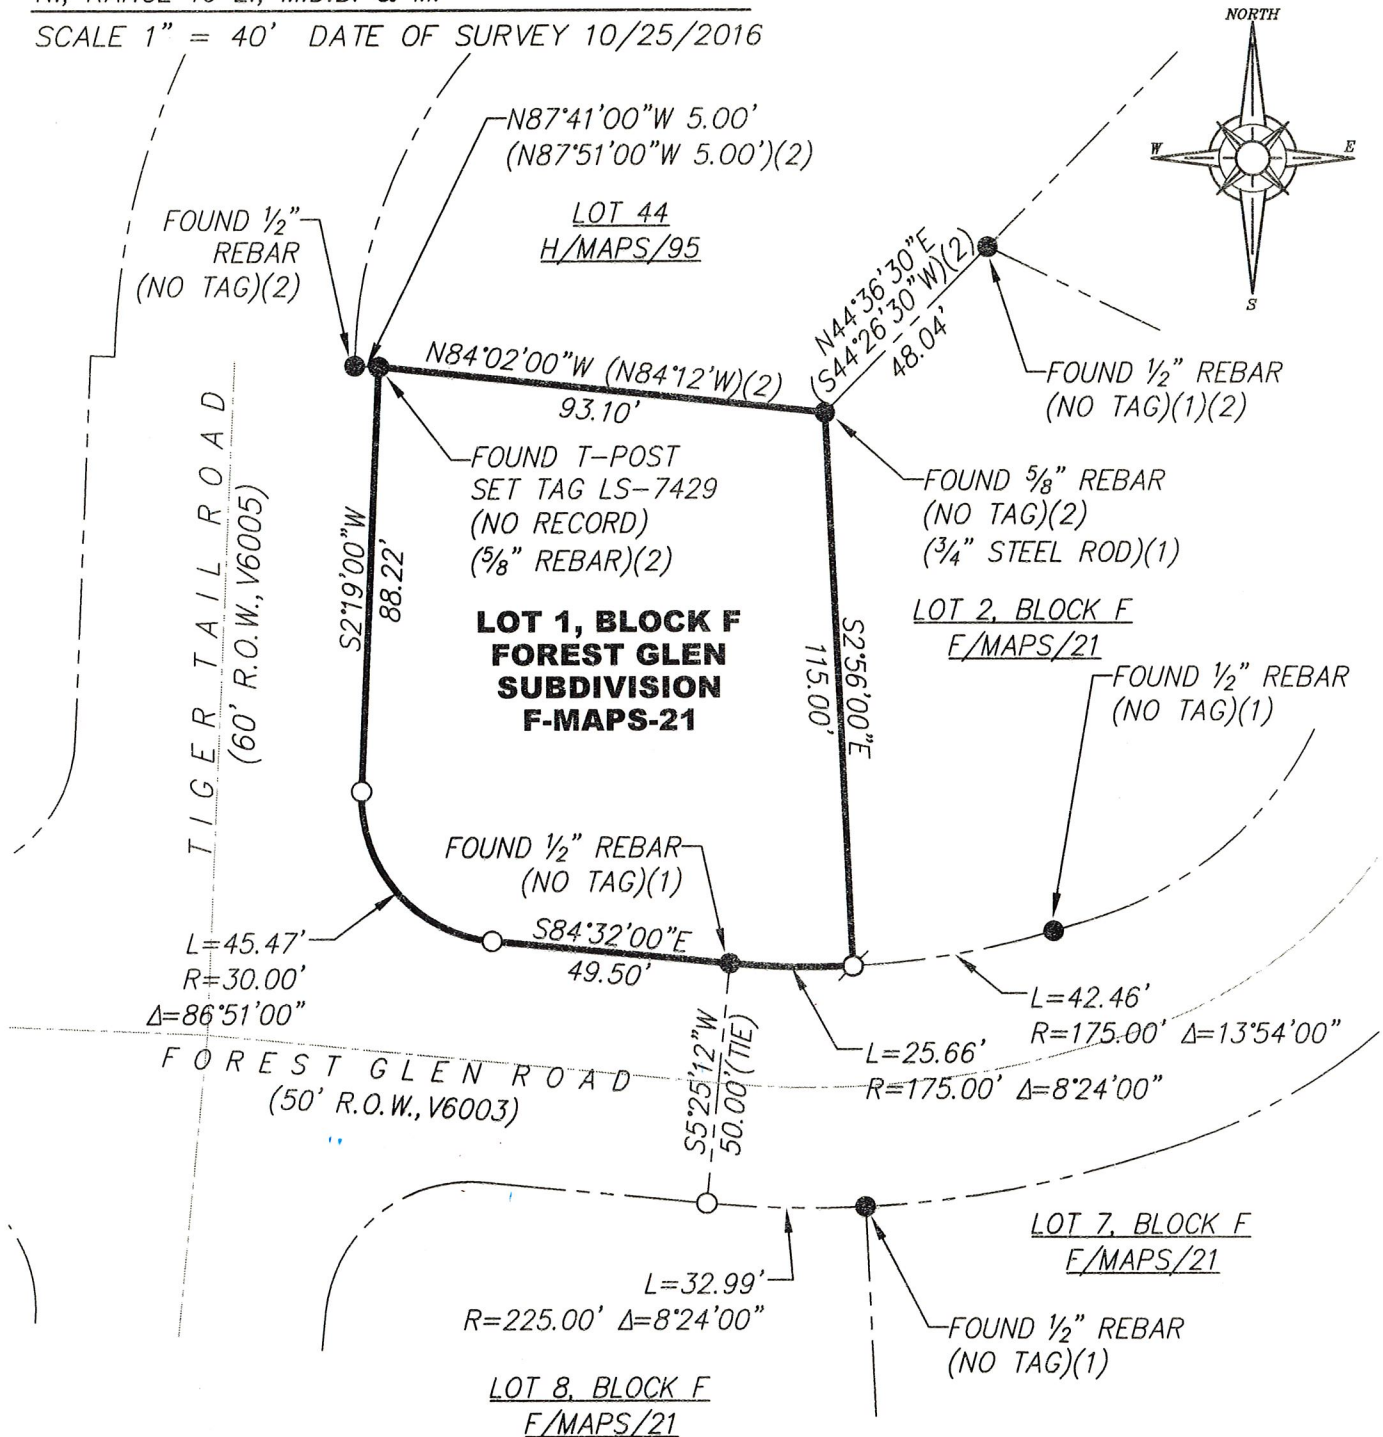 SCALE 1" = 40' DATE OF SURVEY 10/25/2016
NORTH
W
E
S
N87°41'00"W 5.00'
(N87°51'00"W 5.00')(2)
LOT 44
H/MAPS/95
FOUND ½"
REBAR
(NO TAG)(2)
N44°36'30"E
(S44°26'30"W)(2)
48.04'
FOUND ½" REBAR
(NO TAG)(1)(2)
N84°02'00"W (N84°12'W)(2)
93.10'
FOUND T-POST
SET TAG LS-7429
(NO RECORD)
(⅝" REBAR)(2)
FOUND ⅝" REBAR
(NO TAG)(2)
(¾" STEEL ROD)(1)
TIGER TAIL ROAD
(60' R.O.W., V6005)
S2°19'00"W
88.22'
LOT 1, BLOCK F
FOREST GLEN
SUBDIVISION
F-MAPS-21
S2°56'00"E
115.00'
LOT 2, BLOCK F
F/MAPS/21
FOUND ½" REBAR
(NO TAG)(1)
FOUND ½" REBAR
(NO TAG)(1)
S84°32'00"E
49.50'
L=45.47'
R=30.00'
Δ=86°51'00"
L=42.46'
R=175.00' Δ=13°54'00"
L=25.66'
R=175.00' Δ=8°24'00"
FOREST GLEN ROAD
(50' R.O.W., V6003)
S5°25'12"W
50.00'(TIE)
LOT 7, BLOCK F
F/MAPS/21
L=32.99'
R=225.00' Δ=8°24'00"
FOUND ½" REBAR
(NO TAG)(1)
LOT 8, BLOCK F
F/MAPS/21